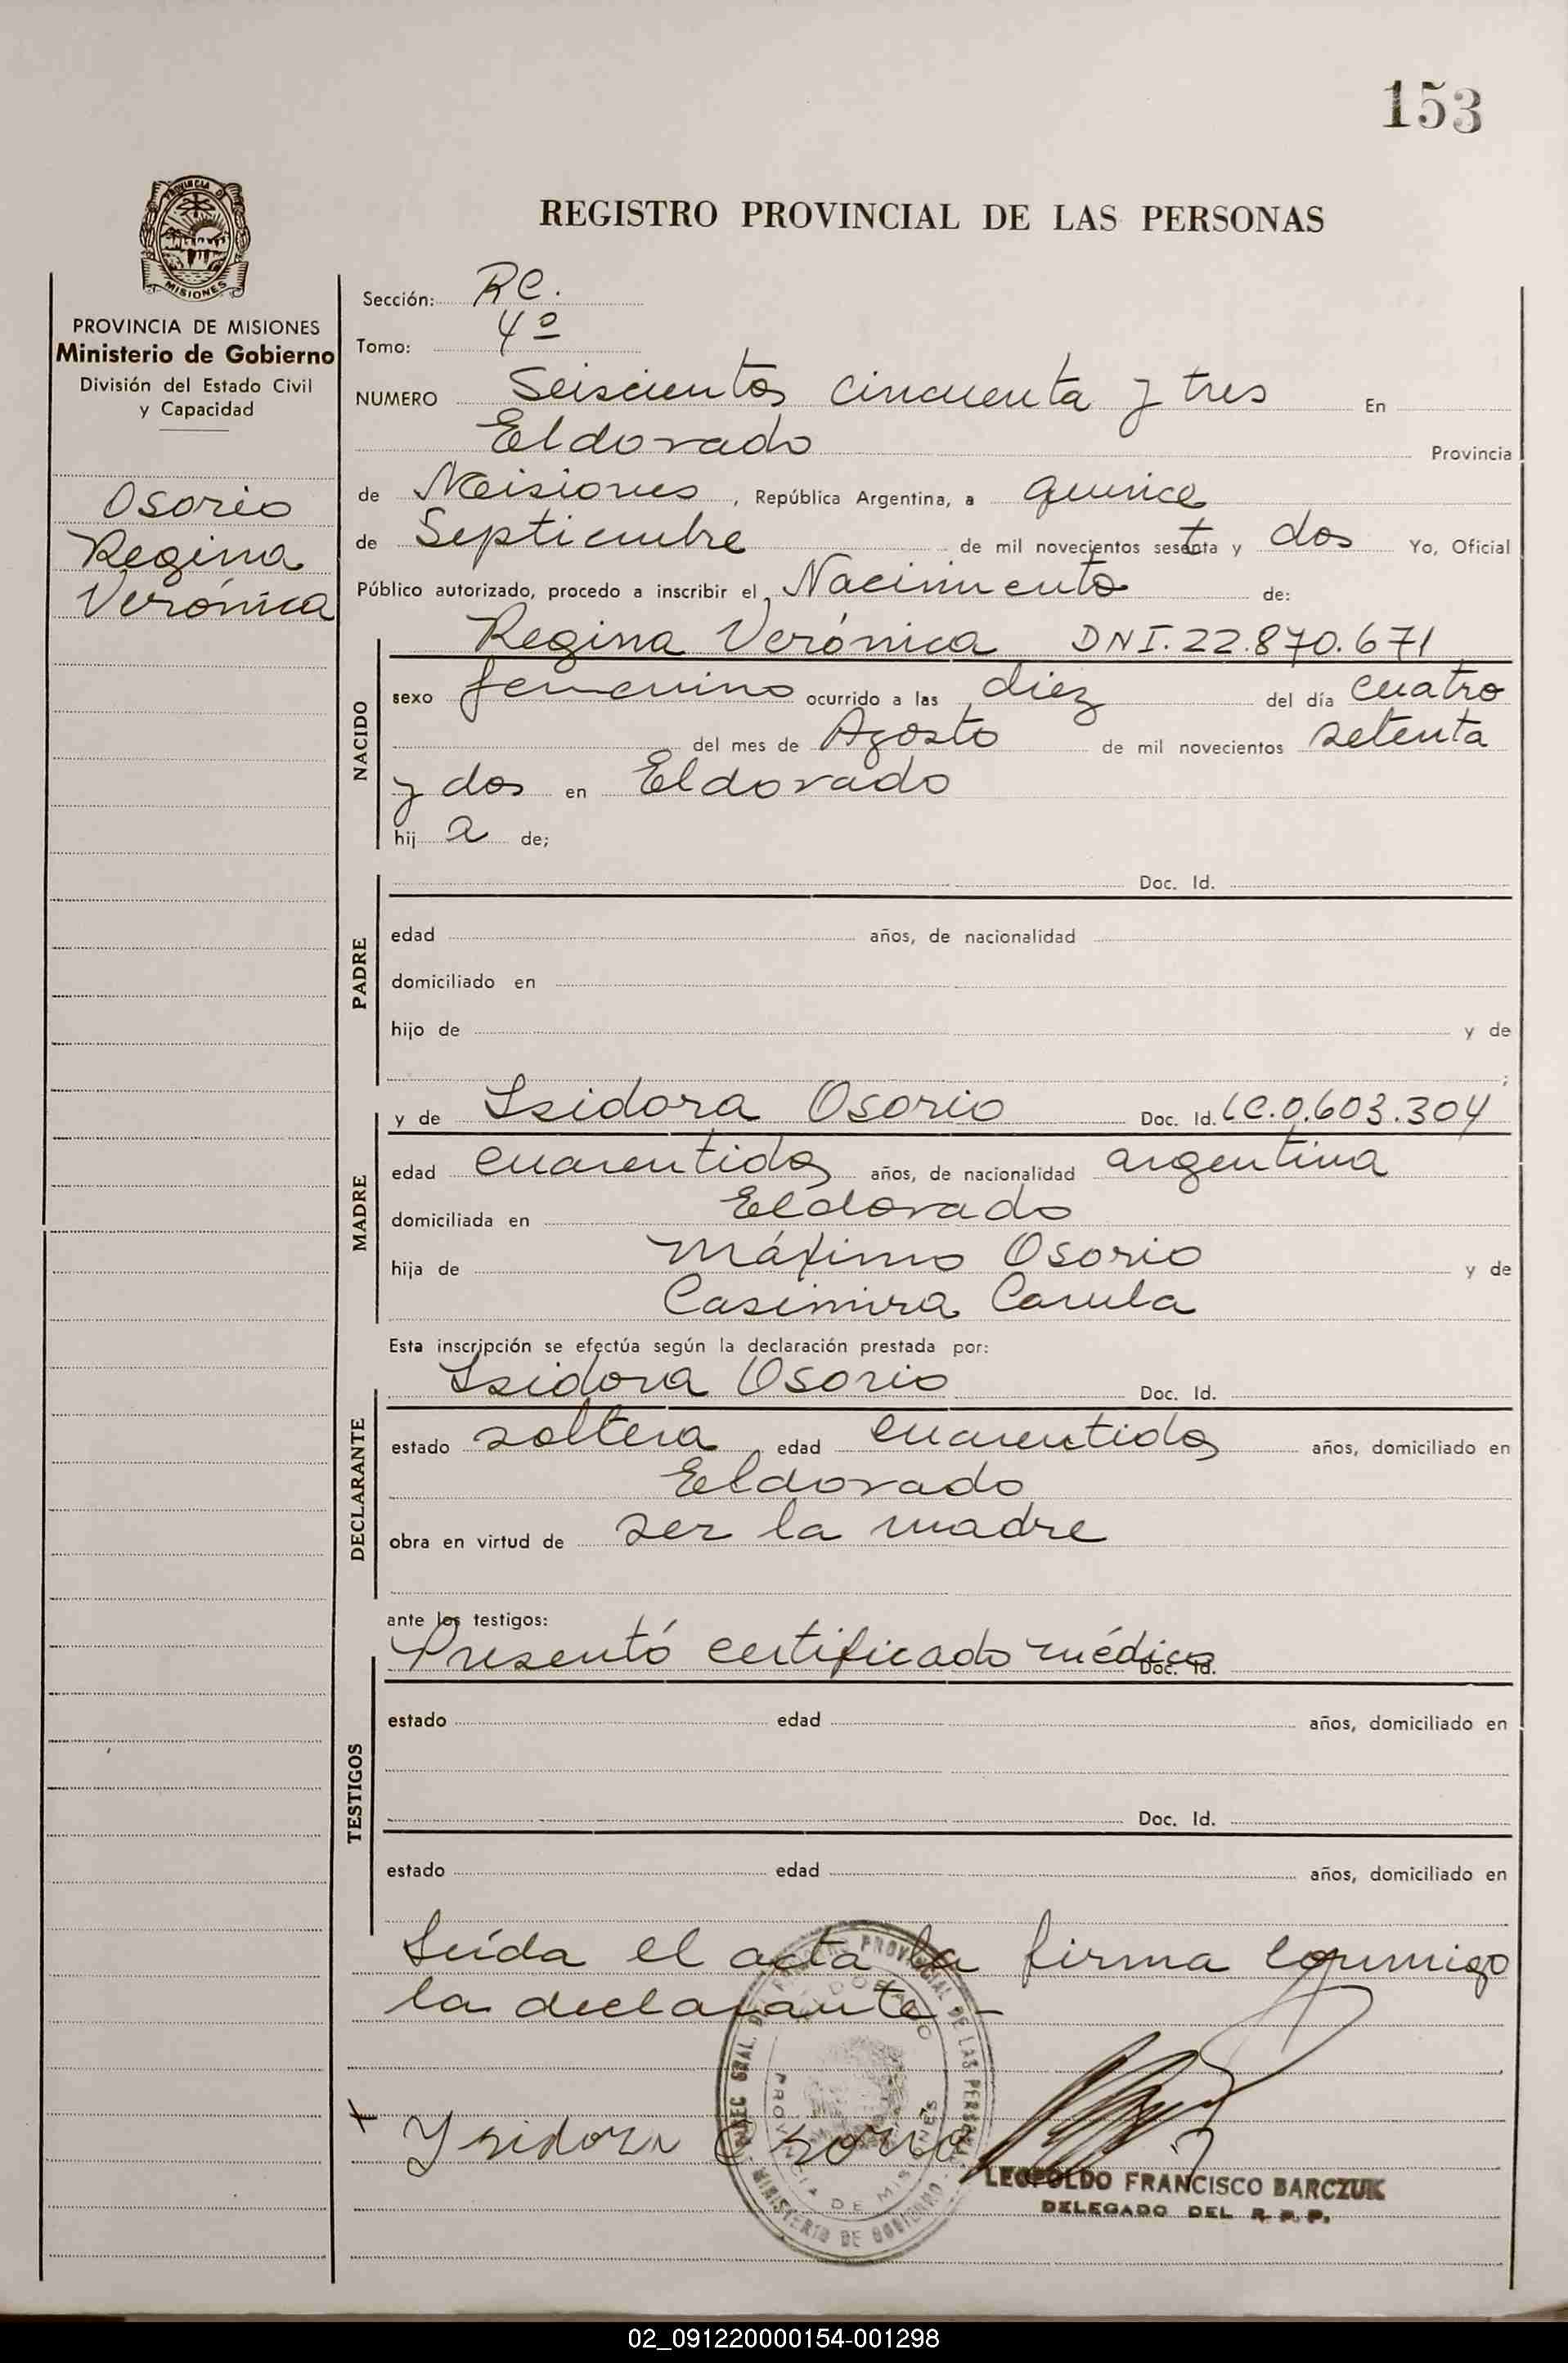 153
PROVINCIA DE
MISIONES
REGISTRO PROVINCIAL DE LAS PERSONAS
PROVINCIA DE MISIONES
Ministerio de Gobierno
División del Estado Civil
y Capacidad
Osorio
Regina
Verónica
Sección: RC.
Tomo: 4º
NUMERO Seiscientos cincuenta y tres En
Eldorado Provincia
de Misiones, República Argentina, a quince
de Septiembre de mil novecientos setenta y dos Yo, Oficial
Público autorizado, procedo a inscribir el Nacimiento de:
NACIDO
Regina Verónica DNI. 22.870.671
sexo femenino ocurrido a las diez del día cuatro
del mes de Agosto de mil novecientos setenta
y dos en Eldorado
hij a de;
PADRE
Doc. Id.
edad años, de nacionalidad
domiciliado en
hijo de y de
;
MADRE
y de Isidora Osorio Doc. Id. LC.0.603.304
edad cuarentidos años, de nacionalidad argentina
domiciliada en Eldorado
hija de Máximo Osorio y de
Casimira Carula
Esta inscripción se efectúa según la declaración prestada por:
DECLARANTE
Isidora Osorio Doc. Id.
estado soltera, edad cuarentidos años, domiciliado en
Eldorado
obra en virtud de ser la madre
ante los testigos:
TESTIGOS
Presentó certificado médico Doc. Id.
estado edad años, domiciliado en
Doc. Id.
estado edad años, domiciliado en
Leída el acta la firma conmigo
la declarante -
Ysidora Osorio
PROVINCIAL DE LAS PERSONAS
MINISTERIO DE GOBIERNO
ELDORADO
PROVINCIA DE MISIONES
LEOPOLDO FRANCISCO BARCZUK
DELEGADO DEL R.P.P.
02_091220000154-001298